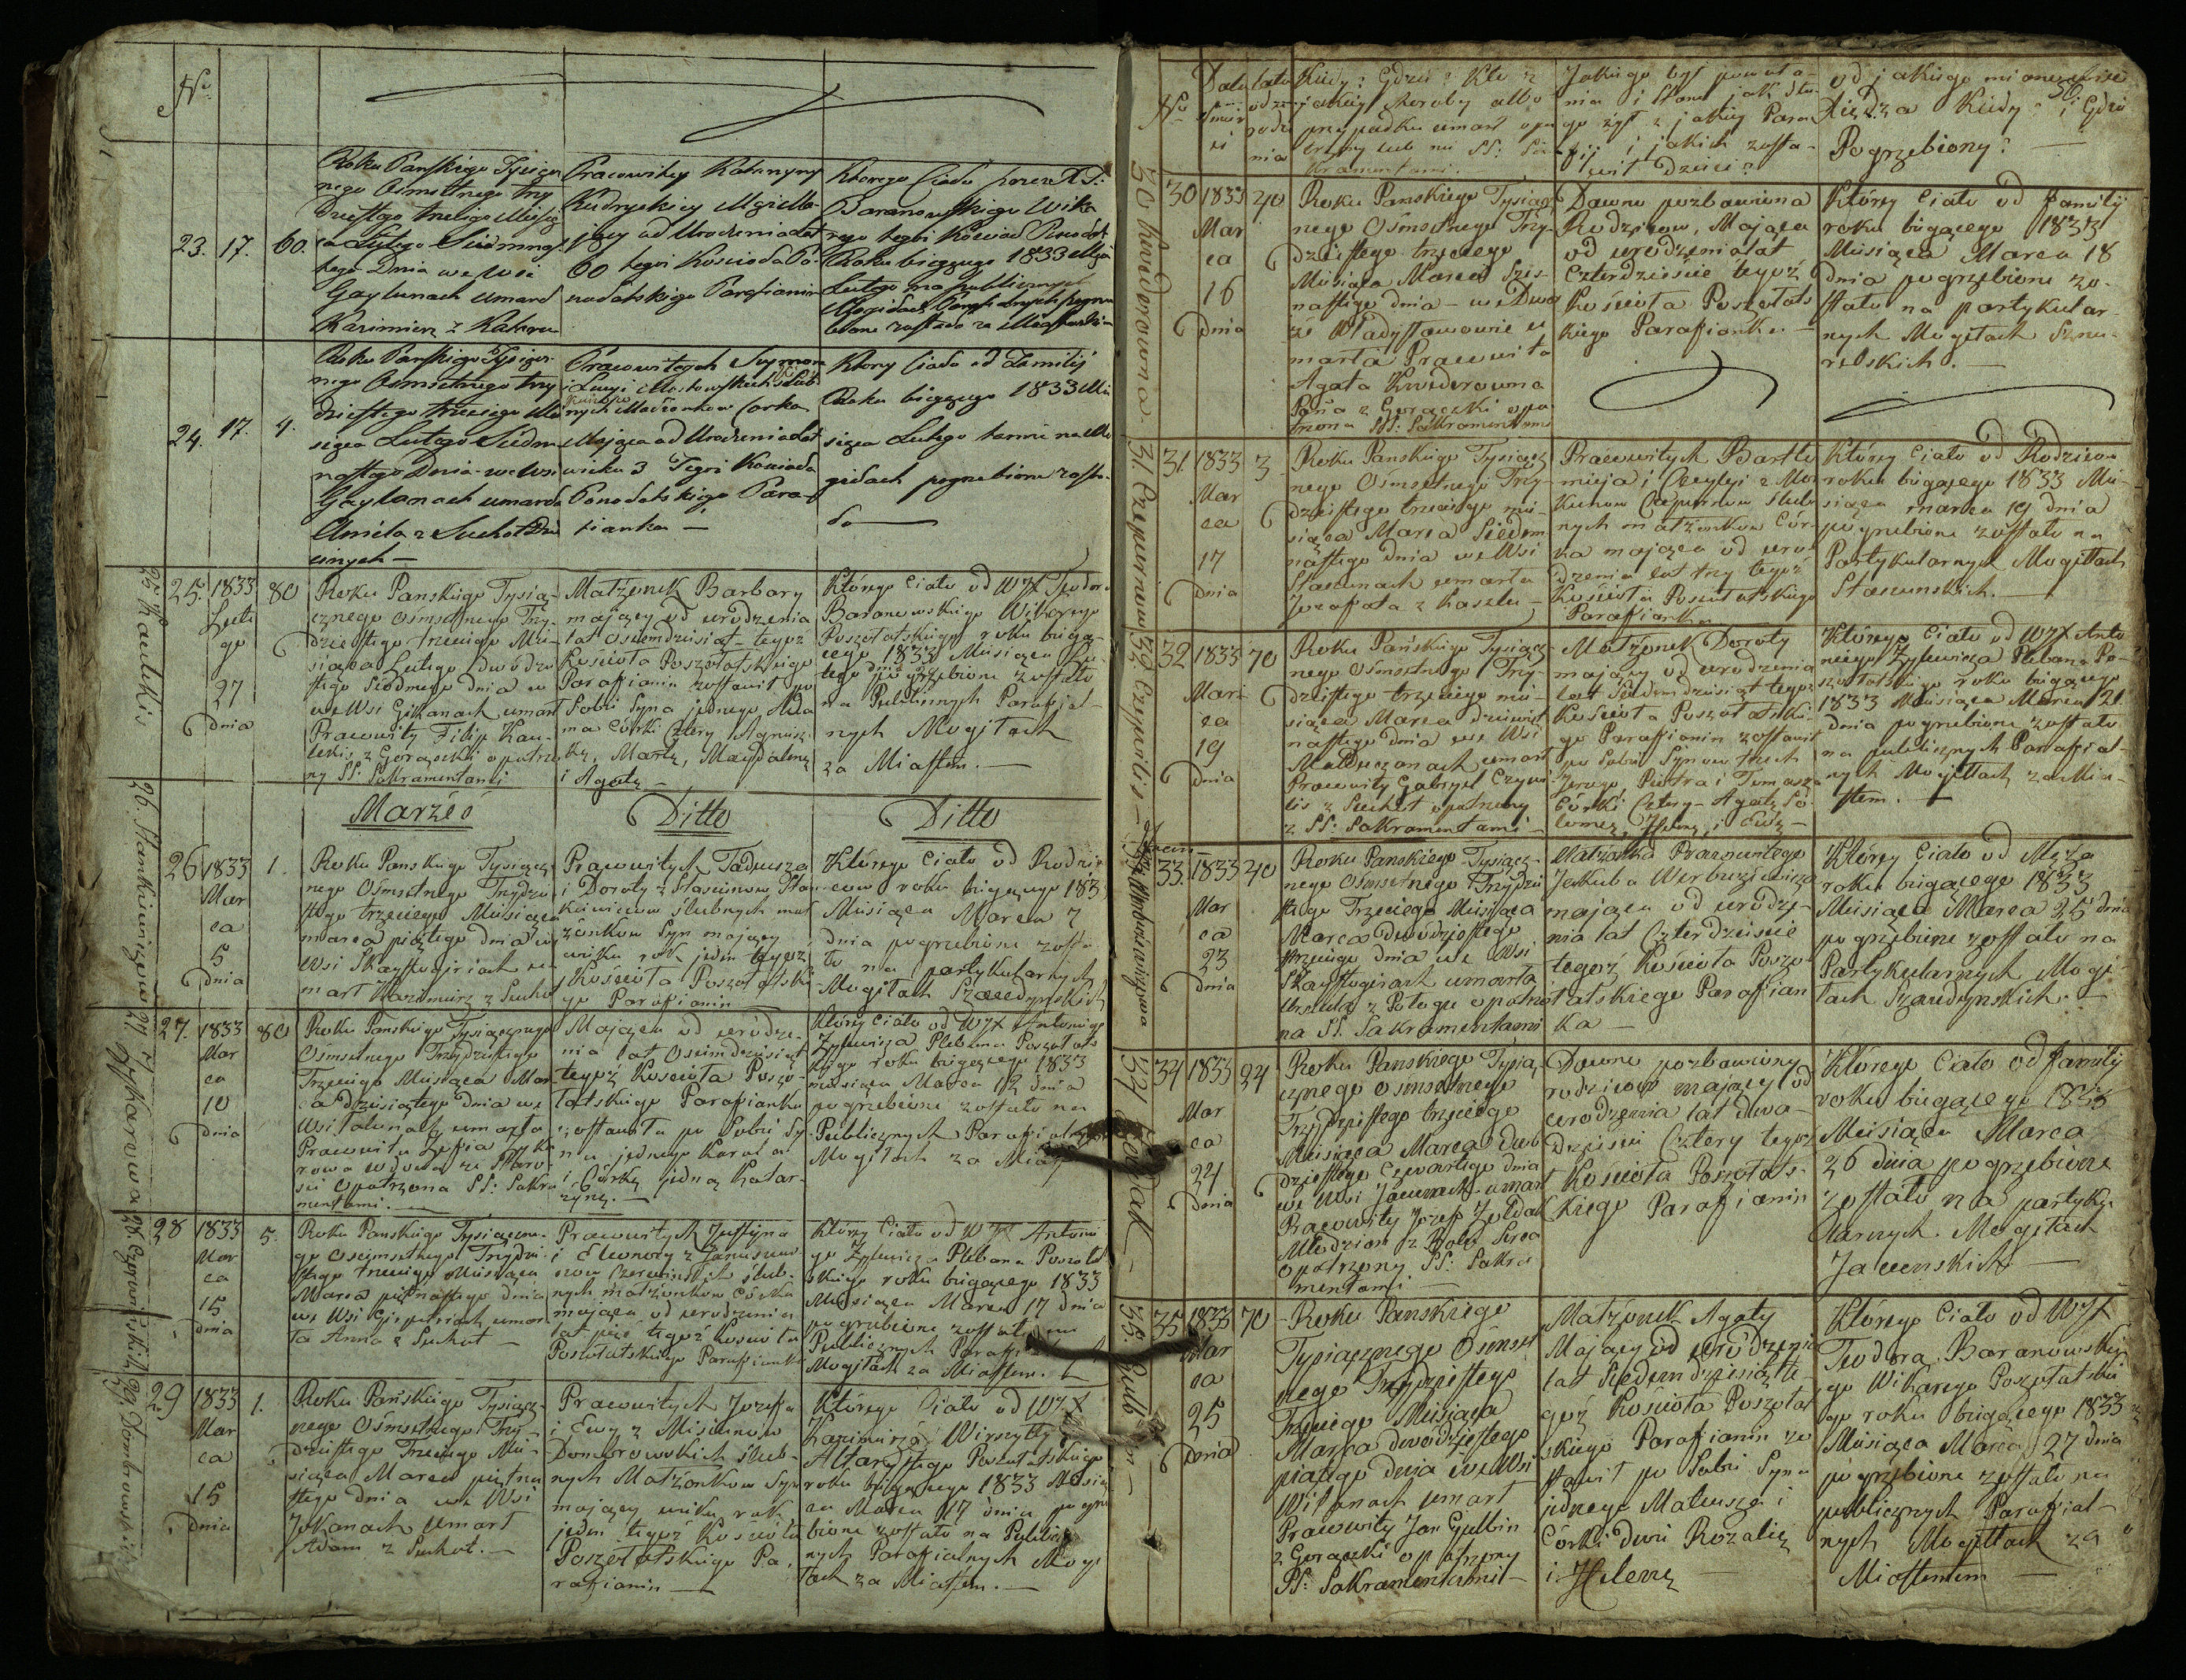 No
23.
17.
60.
Roku Pańskiego Tysiącz
nego Ośmsetnego trzy
dziestego trzeciego Miesią
ca Lutego Siedmnas
tego Dnia we Wsi
Gaylunach umarł
Kazimierz z Kataru
Pracowitey Katarzyny
Kudryckiey
jący od Urodzenia lat
60 tegoż Kościoła Po
Parafianin
Którego Ciało przez
Baranowskiego Wika
rego tegoż Kościoła
Roku bieżącego 1833 Msca
Lutego na publicznych
Mogiłach
24.
17.
4.
Roku Pańskiego Tysiącz
nego Ośmsetnego trzy
dziestego trzeciego Mie
siąca Lutego Siedm
nastego Dnia we Wsi
Gaylanach umarła
Aniela z Suchot
Pracowitych Szymona
i Łucyi
nych Małżonków Corka
Mająca od Urodzenia Lat
wieku 3 Tegoż Kościoła
Para
fianka —
Ktory Ciało od Familij
Roku bieżącego 1833 Mie
siąca Lutego
giłach pogrzebione zosta-
ło
25 Kaulekis
25.
1833
Lute
go
27
dnia
80
Roku Panskiego Tysią-
cznego Ośmsetnego Trzy-
dziestego trzeciego Mie-
siąca Lutego dwódzie
stego siódmego dnia
we Wsi Gikanach umarł
Pracowity Filip Kau-
lekis z Gorączki opatrzo
ny SS: Sakramentami
Małżonek Barbary
mający od urodzenia
lat osiemdziesiąt tegoż
Kościoła Poszołatskiego
Parafianin zostawił po
Sobie Syna jednego Ada
ma Córki Cztery Agnisz-
kę, Martę, Magdalenę
i Agatę —
Którego Ciało od WJX Teodora
Baranowskiego Wikarego
Poszołatskiego roku bieżą-
cego 1833 Miesiąca Lu-
tego dnia pogrzebione zostało
na Publicznych Parafjal-
nych Mogiłach
za Miastem. —
Marzec
Ditto
Ditto
26. Stankiewiczow
26
1833
Mar
ca
5
dnia
1.
Roku Panskiego Tysiącz
nego Ośmsetnego Trzydzie
stego trzeciego Miesiąca
marca piątego dnia we
Wsi Skaystogiriach u
marł Kazimierz z Suchot
Pracowitych Tadeusza
i Doroty z Stasiunow Stan
kiewiczow ślubnych mał
żonkow Syn mający
wieku rok jeden tegoż
Kościoła Poszołatskie
go Parafianin
Którego Ciało od Rodzi
cow roku bieżącego 183
Miesiąca Marca 7
dnia pogrzebione zosta
ło na partykularnych
Mogiłach
27.
27.
1833
Mar
ca
10
dnia
80
Roku Panskiego Tysiącznego
Ośmsetnego Trzydziestego
Trzeciego Miesiąca Mar
ca dziesiątego dnia we
Wsi umarła
Pracowita Zofia
rowa wdowa ze Staro-
sci opatrzona SS: Sakra
mentami. —
Mająca od urodze-
nia lat Osiemdziesiąt
tegoż Kościoła Poszo-
łatskiego Parafianka
zostawiła po Sobie Sy-
na jednego Karola
i Córkę jedną Katar-
zynę. —
Którey Ciało od WJX Antoniego
Zylewicza Plebana Poszołats
kiego roku bieżącego 1833
miesiąca Marca 12 dnia
pogrzebione zostało na
Publicznych Parafialnych
Mogiłach za Miastem
28
1833
Mar
ca
15
dnia
5.
Roku Panskiego Tysiączne-
go Osiemsetnego Trzydzi-
stego trzeciego Miesiąca
Marca piętnastego dnia
we Wsi umar
ła Anna z Suchot —
Pracowitych Justyna
i Eleonory z Januszew
ślub-
nych małżonkow Córka
mająca od urodzenia
lat pięć tegoż Kościoła
Poszołatskiego Parafianka
Którey Ciało od WJX Antonie
go Zylewicza Plebana Poszołat
skiego roku bieżącego 1833
Miesiąca Marca 17 dnia
pogrzebione zostało na
Publicznych
Mogiłach za Miastem. —
Dombrowski
29
1833
Mar
ca
15
dnia
1.
Roku Pańskiego Tysiącz-
nego Ośmsetnego Trzy-
dziestego Trzeciego Mie-
siąca Marca piętna
stego dnia we Wsi
Jokanach Umarł
Adam z Suchot. —
Pracowitych Jozefa
i Ewy z Misiunow
Dombrowskich ślub-
nych Małżonkow Syn
mający wieku rok
jeden tegoż Kościoła
Poszołatskiego Pa-
rafianin —
Którego Ciało od WJX
Kazimierza
Altarystego Poszołatskiego
roku bieżącego 1833 Miesią
ca Marca 17 dnia pogrze
bione zostało na Public
nych Parafialnych Mogi
łach za Miastem. —
56.
No
Data
śmier
ci
lata
od
rodze
nia
Kiedy? Gdzie? Kto z
jakiey choroby albo
przypadku umarł opa
trzony lub nie SS: Sa-
kramentami. —
Jakiego był powoła-
nia i Stanu jak dłu-
go żył z jakiey Para
fij i jakich zosta-
wił Dzieci?
od jakiego mianowicie
Xiędza Kiedy? i Gdzie
Pogrzebiony? —
30 Kwederowna
30
1833
Mar
ca
16
dnia
40
Roku Panskiego Tysiącz
nego Ośmsetnego Trzy-
dziestego trzeciego
Miesiąca Marca Szes-
nastego dnia - we Dwo
rze Władysławowie u
marła Pracowita
Agata Kwederowna
Panna z Gorączki opa
trzona SS: Sakramentami
Dawno pozbawiona
Rodzicow, Mająca
od urodzenia lat
Czterdzieście tegoż
Kościoła Poszołats
kiego Parafianka. —
Którey Ciało od familij
roku bieżącego 1833
Miesiąca Marca 18
dnia pogrzebione zo-
stało na partykular-
nych Mogiłach Sznu-
relskich. —
31. Czepurnow
31.
1833
Mar
ca
17
dnia
3
Roku Panskiego Tysiącz
nego Ośmsetnego Trzy-
dziestego trzeciego mie-
siąca Marca Siedm
nastego dnia we Wsi
Stasiunach umarła
Jozafata z Kaszlu —
Pracowitych Bartło
mieja i Cecylyi z
Czepurnow ślub
nych małżonkow Cór-
ka mająca od uro-
dzenia lat trzy tegoż
Kościoła Poszołatskiego
Parafianka
Którey Ciało od Rodzicow
roku bieżącego 1833 Mie-
siąca marca 19 dnia
pogrzebione zostało na
Partykularnych Mogiłach
Stasiunskich. —
32
1833
Mar
ca
19
dnia
70
Roku Pańskiego Tysiącz-
nego Ośmsetnego Trzy-
dziestego trzeciego mie-
siąca Marca dziewięt
nastego dnia we Wsi
umarł
Pracowity Gabryel
lis z Suchot opatrzony
z SS: Sakramentami —
Małżonek Doroty
mający od urodzenia
lat Siedemdziesiąt tegoż
Kościoła Poszołatskie-
go Parafianin zostawił
po Sobie Synow trzech
Jerzego, Piotra i Tomasza
Córki Cztery - Agatę
i Ewę —
Którego Ciało od WJX Anto
niego Zylewicza Plebana Po-
szołatskiego roku bieżącego
1833 Miesiąca Marca 21
dnia pogrzebione zostało
na publicznych Parafial-
nych Mogiłach za Mia-
stem. —
33.
1833
Mar
ca
23
dnia
40
Roku Panskiego Tysiącz-
nego Ośmsetnego Trzydzie
stego Trzeciego Miesiąca
Marca dwódziestego
trzeciego dnia we Wsi
Skaystogirach umarła
Urszula z Połogu opatrzo
na SS. Sakramentami
Małżonka Pracowitego
Jakuba Werbuziewicza
mająca od urodze-
nia lat Czterdzieście
tegoż Kościoła Poszo-
łatskiego Parafian
ka —
Którey Ciało od Męża
roku bieżącego 1833
Miesiąca Marca 25 dnia
pogrzebione zostało na
Partykularnych Mogi-
łach
34
1833
Mar
ca
24
dnia
24
Roku Panskiego Tysią-
cznego ośmsetnego
Trzydziestego trzeciego
Miesiąca Marca dwó
dziestego czwartego dnia
we Wsi Jacunach umarł
Pracowity Jozef Zołdak
Młodzian z Bolu Serca
Opatrzony SS: Sakra
mentami —
Dawno pozbawiony
rodzicow mający od
urodzenia lat dwa-
dzieścia Cztery tegoż
Kościoła Poszołats-
kiego Parafianin
Którego Ciało od familij
roku bieżącego 1833
Miesiąca Marca
26 dnia pogrzebione
zostało na partyku-
larnych Mogiłach
Jacunskich —
35
1833
Mar
ca
25
Dnia
70
Roku Panskiego
Tysiącznego Ośmset
nego Trzydziestego
Trzeciego Miesiąca
Marca dwódziestego
piątego dnia we Wsi
Wilanach umarł
Pracowity Jan Gulbin
z Gorączki opatrzony
SS: Sakramentami —
Małżonek Agaty
Mający od urodzenia
lat Siedemdziesiąt te-
goż Kościoła Poszołat
skiego Parafianin zo
stawił po Sobie Syna
jednego Mateusza i
Córki dwie Rozalię
i Helenę
Którego Ciało od WJX
Teodora Baranowskie
go Wikarego Poszołatskie
go roku bieżącego 1833
Miesiąca Marca 27 dnia
pogrzebione zostało na
publicznych Parafial-
nych Mogiłach za
Miastem —